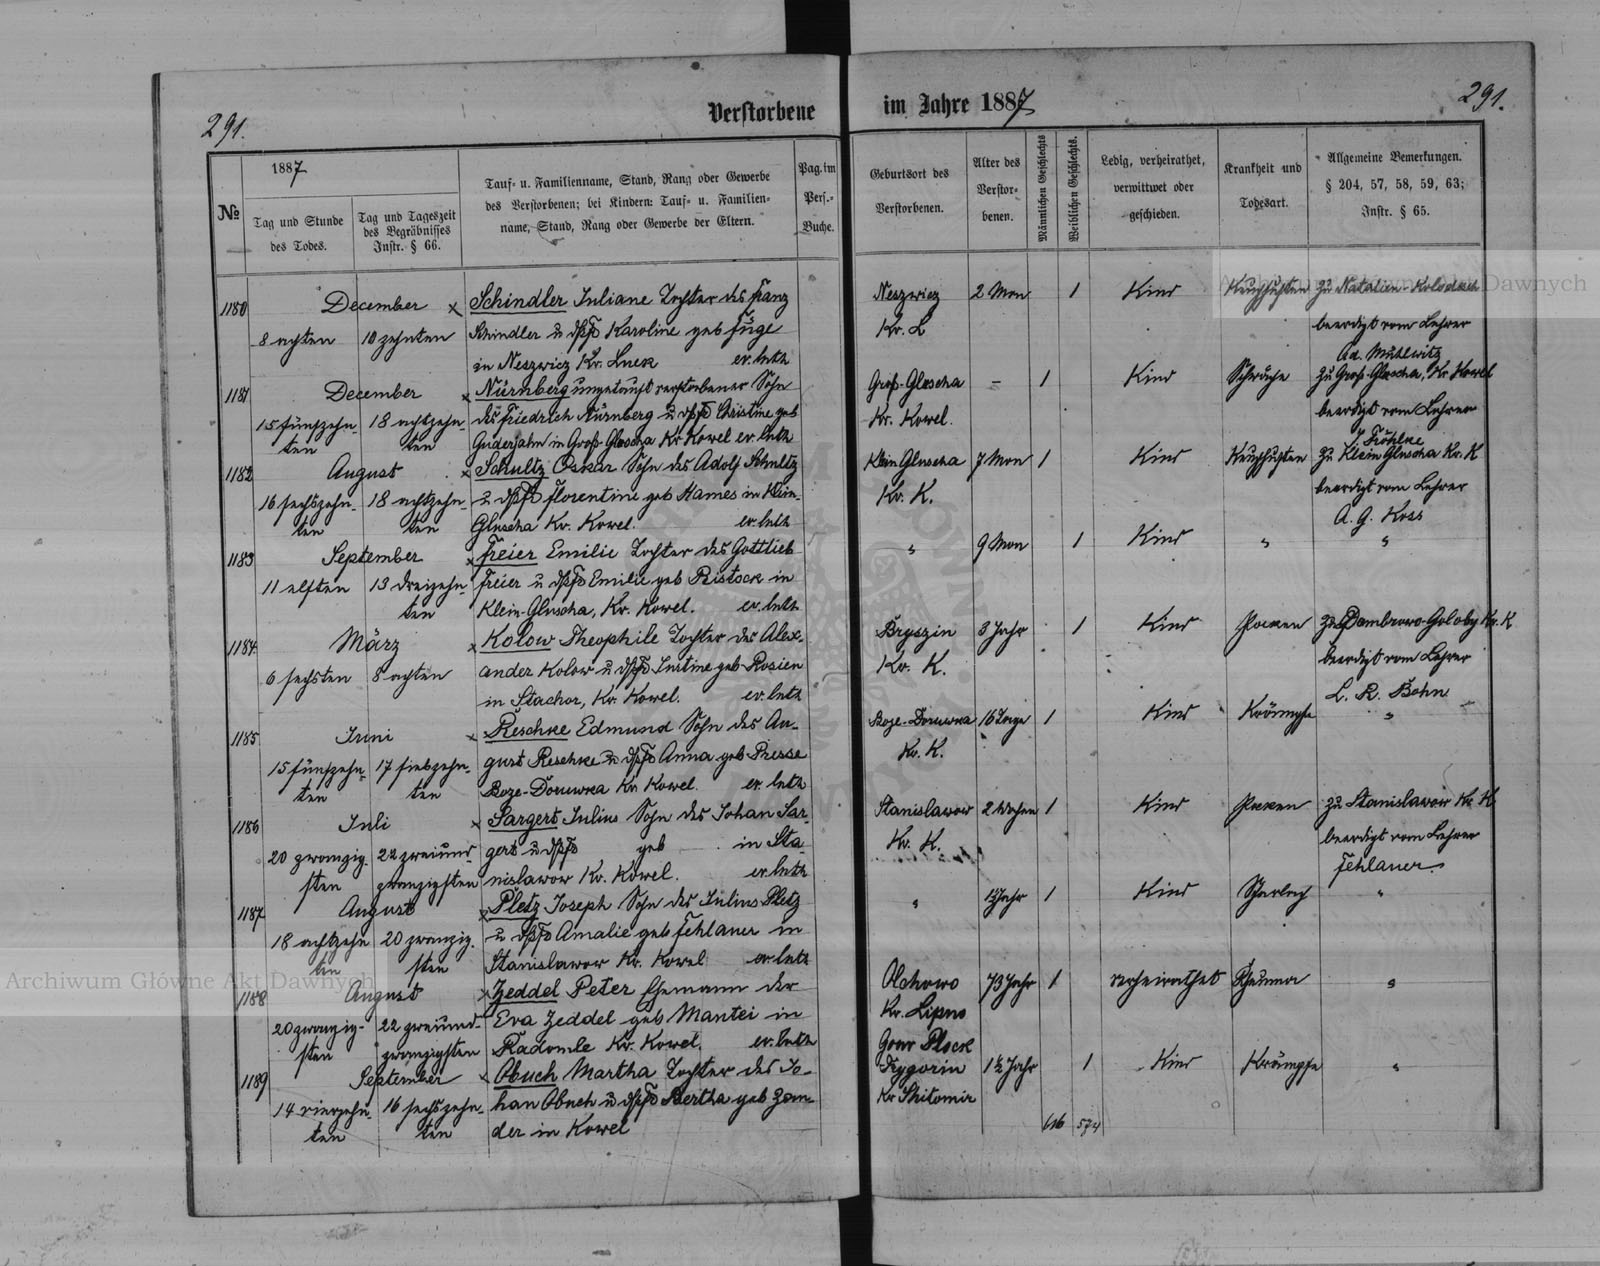 291.
Verstorbene
im Jahre 1887
291.
№
1887
Tag und Stunde
des Todes.
Tag und Tageszeit
des Begräbnisses
Instr. § 66.
Tauf- u. Familienname, Stand, Rang oder Gewerbe
des Verstorbenen; bei Kindern: Tauf- u. Familien-
name, Stand, Rang oder Gewerbe der Eltern.
Pag. im
Pers.-
Buche.
Geburtsort des
Verstorbenen.
Alter des
Verstor-
benen.
Männlichen Geschlechts
Weiblichen Geschlechts.
Ledig, verheirathet,
verwittwet oder
geschieden.
Krankheit und
Todesart.
Allgemeine Bemerkungen.
§ 204, 57, 58, 59, 63;
Instr. § 65.
1180
December
8 achten
10 zehnten
Schindler Juliane Tochter des Franz
Schindler u Karoline geb Füge
in Neszwicz Kr. Luck ev. luth
Neszwicz
Kr. L
2 Mon
1
Kind
Keuchhusten
zu Natalien-Kolodesch
beerdigt vom Lehrer
Ad. Muhlwitz
1181
December
15 fünfzehn-
ten
18 achtzehn-
ten
Nürnberg ungetauft verstorbener Sohn
des Friedrich Nürnberg u Christine geb
Guderjahn in Groß-Gluscha Kr Kowel ev. luth
Groß-Gluscha
Kr. Kowel.
–
1
Kind
Schwäche
zu Groß-Gluscha, Kr. Kowel
beerdigt vom Lehrer
J Fröhlke
1182
August
16 sechszehn-
ten
18 achtzehn-
ten
Schultz Oskar Sohn des Adolf Schultz
u Florentine geb Hames in Klein-
Gluscha Kr. Kowel. ev. luth
Klein Gluscha
Kr. K.
7 Mon
1
Kind
Keuchhusten
zu Klein Gluscha Kr. K
beerdigt vom Lehrer
A. G. Koss
1183
September
11 elften
13 dreizehn-
ten
Freier Emilie Tochter des Gottlieb
Freier u Emilie geb Ristock in
Klein-Gluscha, Kr. Kowel. ev. luth
"
9 Mon
1
Kind
"
"
1184
März
6 sechsten
8 achten
Kolow Theophile Tochter des Alex-
ander Kolow u Justine geb Rosien
in Stachor, Kr. Kowel. ev. luth
Bryszin
Kr. K.
3 Jahr
1
Kind
Pocken
zu Dombrowo-Goloby Kr. K
beerdigt vom Lehrer
L. R. Bohn
1185
Juni
15 fünfzehn-
ten
17 siebzehn-
ten
Reschke Edmund Sohn des Au-
gust Reschke u Anna geb Presse
ev. luth
Kr. K.
16 Tage
1
Kind
Krämpfe
"
1186
Juli
20 zwanzig-
sten
22 zweiund-
zwanzigsten
Sargert Julius Sohn des Johan Sar-
gert u geb in Sta-
nislawow Kr. Kowel. ev. luth
Stanislawow
Kr. K.
2 Wochen
1
Kind
Pocken
zu Stanislawow Kr. K
beerdigt vom Lehrer
Fehlauer
1187
August
18 achtzehn
ten
20 zwanzig-
sten
Pletz Joseph Sohn des Julius Pletz
u Amalie geb Fehlauer in
Stanislawow Kr. Kowel ev. luth
"
1
Kind
Scharlach
"
1188
August
20 zwanzig-
sten
22 zweiund-
zwanzigsten
Zeddel Peter Ehemann der
Eva Zeddel geb Mantei in
Radomle Kr. Kowel. ev. luth
Olchowo
Kr. Lipno
Gouv Plock
73 Jahr
1
verheirathet
Rheuma
"
1189
September
14 vierzehn-
ten
16 sechszehn-
ten
Obuch Martha Tochter des Jo-
han Obuch u Bertha geb Zan-
der in Kowel
Trygorin
Kr Shitomir
1½ Jahr
1
Kind
Krämpfe
"
616
574
Archiwum Główne Akt Dawnych
Archiwum Główne Akt Dawnych